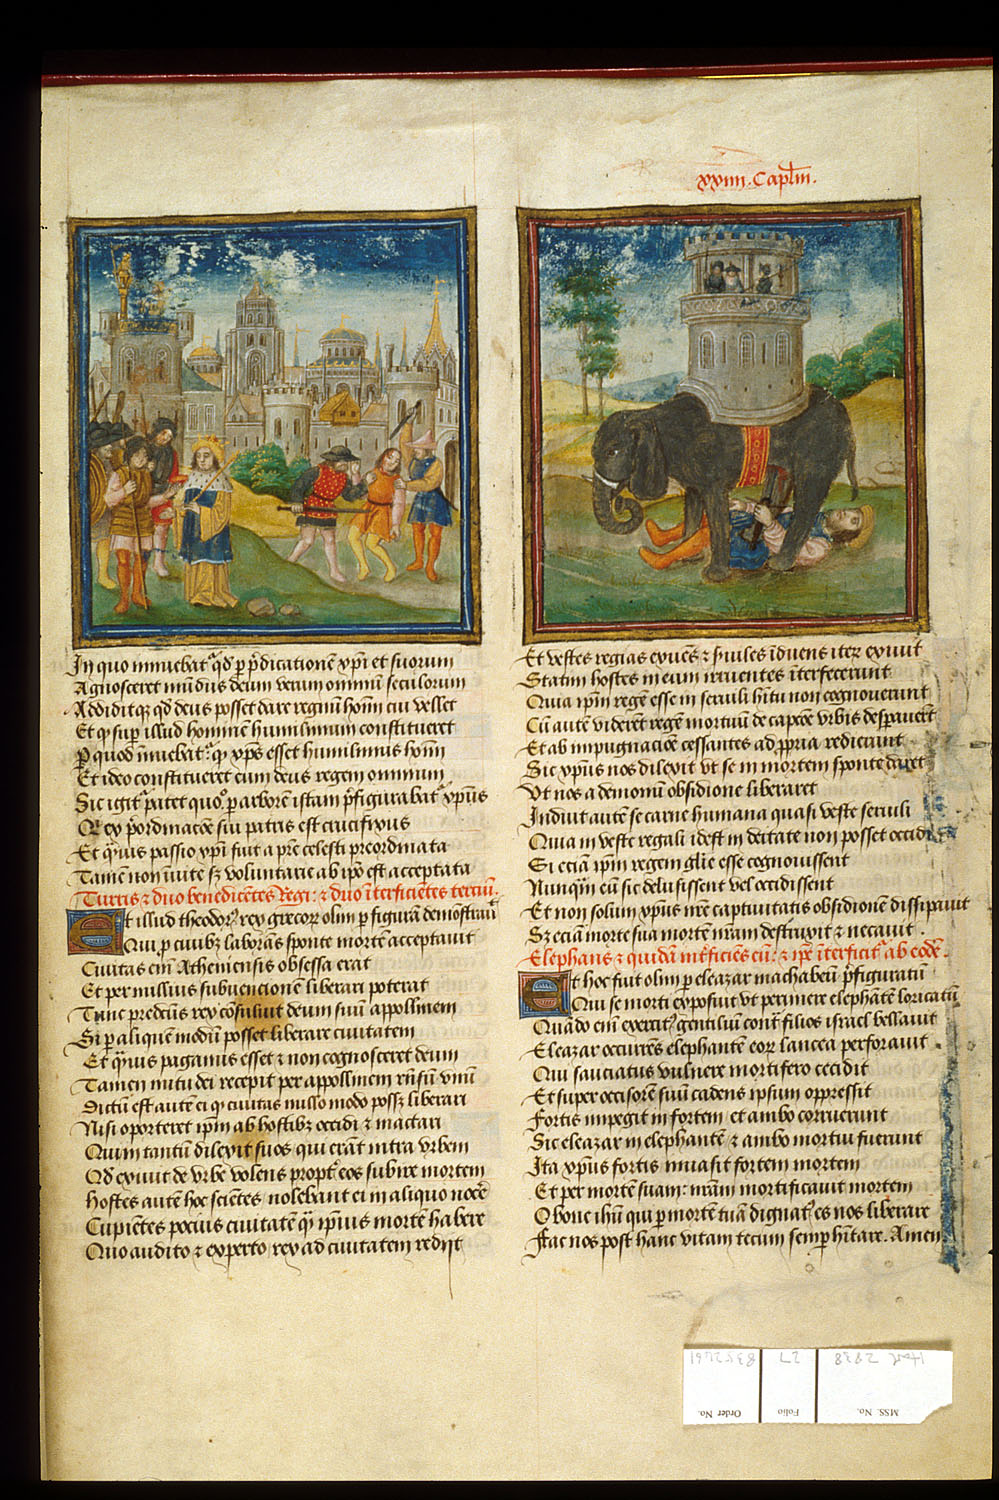 xxiiii. Capłm.
In quo innuebat᷑ qd̕ p p̄dicationē xp̄i et suorum
Agnosceret mūdus deum verum omniū seculorum
Addiditqȝ qd̕ deus posset dare regnū hoīm cui vellet
Et qd̕ sup̱ illud hominem humilimum constitueret
P quod īnuebat᷑ qꝫ xp̄s esset humilimus homī
Et ideo constitueret eum deus regem omnium
Sic igit᷑ patet quo p arborē istam p̄figurabat᷑ xp̄us
Rex p̄ordinacōe sui patris est crucifixus
Et q̄uis passio xp̄i fuit a pr̄e celesti preordinata
Tamē non īuite sꝫ voluntarie ab ip̄o est acceptata
Turris ⁊ duo benedicētes Regi: ⁊ duo īterficiētes terciū.
Et illud theodorꝰ rex grecoꝝ olim p figurā demōstrauit
Qui p ciuibꝫ laborās sponte mortē acceptauit
Ciuitas em̄ Atheniensis obsessa erat
Et per nullius subuencionē liberari poterat
Tunc predcūs rex cōsuluit deum suū appollinem
Si p aliquē modū posset liberare ciuitatem
Et q̄uis paganus esset ⁊ non cognosceret deum
Tamen nutu dei recepit per appollinem rn̄sū vnū
Dictū est autē ei qꝫ ciuitas nullo modo possꝫ liberari
Nisi oporteret ip̄m ab hostibꝫ occidi ⁊ mactari
Qui in tantū dilexit suos qui erāt intra vrbem
Qd̕ exiuit de vrbe volens propt̕ eos subire mortem
Hostes autē hoc scientes nolebant ei in aliquo nocē
Cupientes pocius ciuitatē q̄ ip̄ius mortē habere
Quo audito ⁊ experto rex ad ciuitatem redijt
Et vestes regias exuēs ⁊ s̕uiles īduens iteꝝ exiuit
Statim hostes in eum irruentes īterfecerunt
Quia ip̄m regē esse in seruili hītu non cognouerunt
Cū autē viderēt regē mortuū de capcōe vrbis desp̱auerūt
Et ab impugnacōe cessantes ad p̱pria redierunt
Sic xp̄us nos dilexit vt se in mortem sponte daret
Vt nos a demonū obsidione liberaret
Induit autē se carne humana quasi veste seruili
Quia in veste regali idest in deitate non posset occidi
Si eciā ip̄m regem gl̄ie esse cognouissent
Nunq̄m eū sic delusissent vel occidissent
Et non solum xp̄us nr̄e captiuitatis obsidionē dissipauit
Sꝫ eciā morte sua mortē nr̄am destruxit ⁊ necauit.
Elephans ⁊ quidā int̕ficiēs eū: ⁊ ip̄e īterficit᷑ ab eodē.
Et hoc fuit olim p eleazar machabeū p̄figuratū
Qui se morti exposuit vt perimere elephātē loricatū
Quādo em̄ exercitꝰ gentiliū cont̄ filios israel bellauit
Eleazar occurrēs elephantē eoꝝ lancea perforauit
Qui sauciatus vulnere mortifero cecidit
Et super occisorē suū cadens ipsum oppressit
Fortis impegit in fortem et ambo corruerunt
Sic eleazar in elephantē ⁊ ambo mortui fuerunt
Ita xp̄us fortis inuasit fortem mortem
Et per mortē suam: nr̄am mortificauit mortem
O bone ihū qui p mortē tuā dignatꝰ es nos liberare
Fac nos post hanc vitam tecum semp̱ hītare. Amen
MSS. No. Folio Order No.
Harl 2838 27 8352461